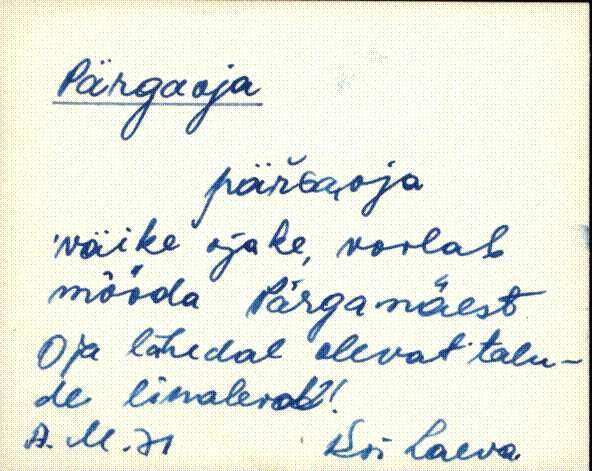 Pärgaoja
pärGa,oja
väike ojake, voolab
mööda Pärgamäest
Oja lähedal olevat talu-
de linaleod!
A. M. 71
Ksi Laeva